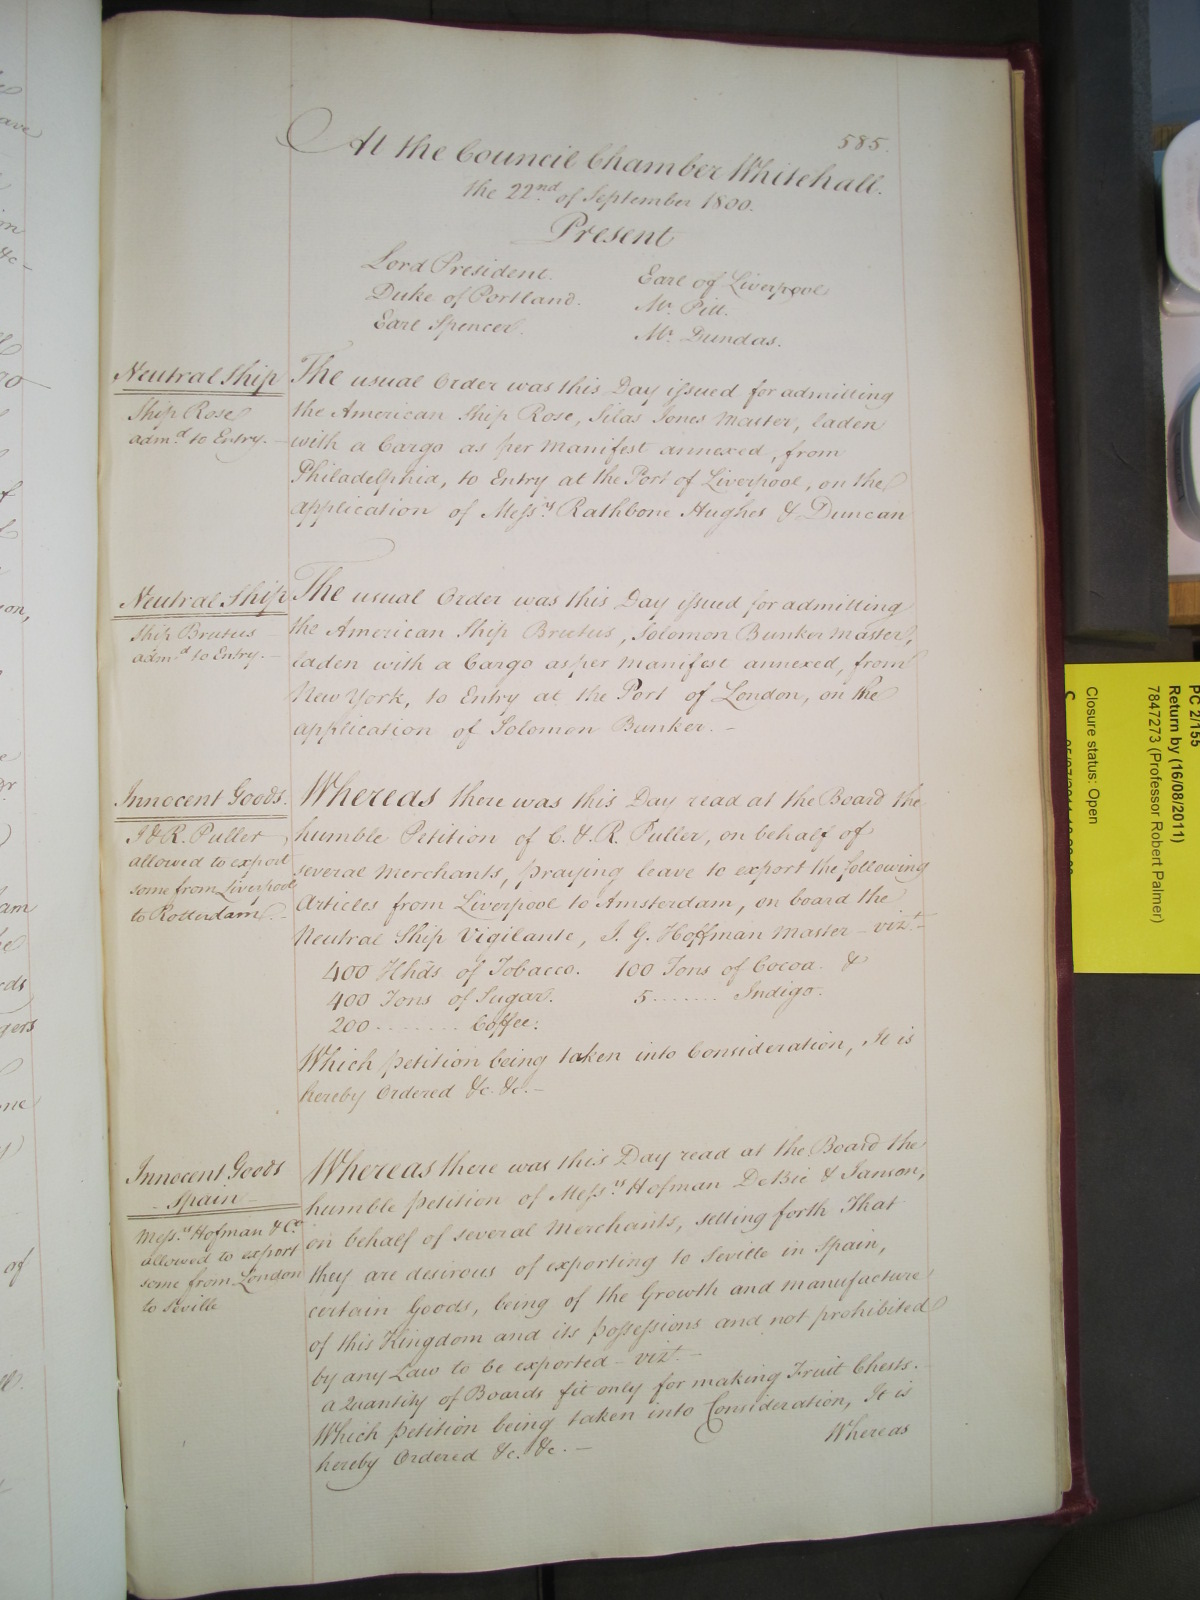 585.
At the Council Chamber Whitehall.
the 22nd. of September 1800.
Present
Lord President. Earl of Liverpool
Duke of Portland. Mr. Pitt.
Earl Spencer. Mr. Dundas.
Neutral Ship
Ship Rose
adm.d to Entry. -
The usual Order was this Day issued for admitting
the American Ship Rose, Silas Jones Master, laden
with a Cargo as per Manifest annexed, from
Philadelphia, to Entry at the Port of Liverpool, on the
application of Mess.rs Rathbone Hughes & Duncan
Neutral Ship
Ship Brutus
adm.d to Entry. -
The usual Order was this Day issued for admitting
the American Ship Brutus, Solomon Bunker Master,
laden with a Cargo as per Manifest annexed, from
New York, to Entry at the Port of London, on the
application of Solomon Bunker. -
Innocent Goods.
I & R. Puller
allowed to export
some from Liverpool
to Rotterdam -
Whereas there was this Day read at the Board the
humble Petition of C. & R. Puller, on behalf of
several Merchants, praying leave to export the following
Articles from Liverpool to Amsterdam, on board the
Neutral Ship Vigilante, I. G. Hoffman Master - vizt. -
400 Hhds of Tobacco. 100 Tons of Cocoa. &
400 Tons of Sugar. 5 ....... Indigo.
200 ........ Coffee.
Which petition being taken into Consideration, It is
hereby Ordered &c. &c. -
Innocent Goods
Spain
Mess.rs Hofman & Co.
allowed to export
some from London
to Seville
Whereas there was this Day read at the Board the
humble petition of Mess.rs Hofman DeBie & Janson,
on behalf of several Merchants, setting forth That
they are desirous of exporting to Seville in Spain,
certain Goods, being of the Growth and manufacture
of this Kingdom and its possessions and not prohibited
by any Law to be exported - vizt. -
a Quantity of Boards fit only for making Fruit Chests.
Which petition being taken into Consideration, It is
hereby Ordered &c. &c. -
Whereas
PC 2/155
Return by (16/08/2011)
7847273 (Professor Robert Palmer)
Closure status: Open